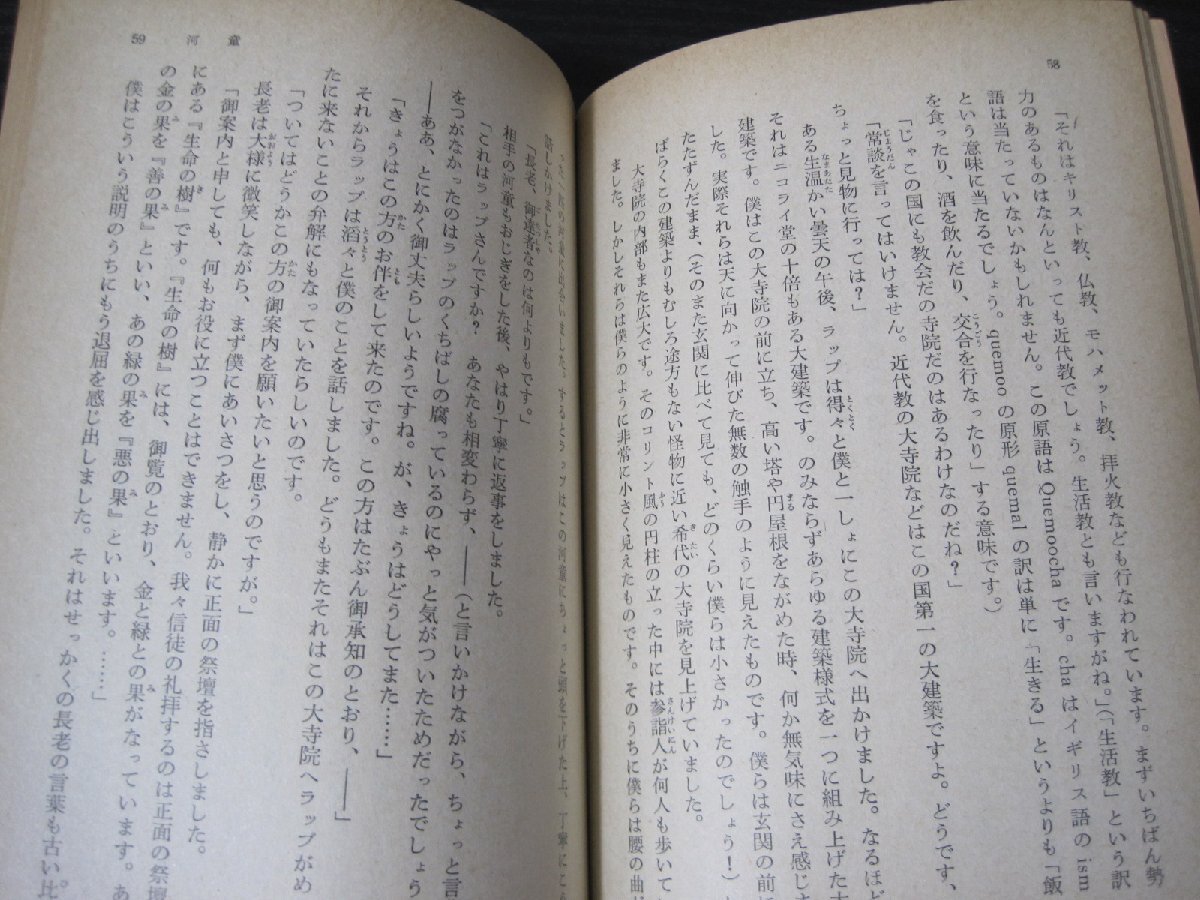 58
「それはキリスト教、仏教、モハメット教、拝火教なども行なわれています。まずいちばん勢
力のあるものはなんといっても近代教でしょう。生活教とも言いますがね。」(「生活教」という訳
語は当たっていないかもしれません。この原語は Quemoocha です。cha はイギリス語の ism
という意味に当たるでしょう。quemoo の原形 quemal の訳は単に「生きる」というよりも「飯
を食ったり、酒を飲んだり、交合を行なったり」する意味です。)
「じゃこの国にも教会だの寺院だのはあるわけなのだね?」
「常談を言ってはいけません。近代教の大寺院などはこの国第一の大建築ですよ。どうです、
ちょっと見物に行っては?」
ある生温かい曇天の午後、ラップは得々と僕と一しょにこの大寺院へ出かけました。なるほど
それはニコライ堂の十倍もある大建築です。のみならずあらゆる建築様式を一つに組み上げた大
建築です。僕はこの大寺院の前に立ち、高い塔や円屋根をながめた時、何か無気味にさえ感じま
した。実際それらは天に向かって伸びた無数の触手のように見えたものです。僕らは玄関の前に
たたずんだまま、(そのまた玄関に比べて見ても、どのくらい僕らは小さかったのでしょう!)
ばらくこの建築よりもむしろ途方もない怪物に近い希代の大寺院を見上げていました。
大寺院の内部もまた広大です。そのコリント風の円柱の立った中には参詣人が何人も歩いて
ました。しかしそれらは僕らのように非常に小さく見えたものです。そのうちに僕らは腰の曲が
59 河童
河童に出合いました。するとラップはこの河童にちょっと頭を下げた上、丁寧にこう
話しかけました。
「長老、御達者なのは何よりもです。」
相手の河童もおじぎをした後、やはり丁寧に返事をしました。
「これはラップさんですか? あなたも相変わらず、――(と言いかけながら、ちょっと言
をつがなかったのはラップのくちばしの腐っているのにやっと気がついたためだったでしょう
――ああ、とにかく御丈夫らしいようですね。が、きょうはどうしてまた……」
「きょうはこの方のお伴をして来たのです。この方はたぶん御承知のとおり、――」
それからラップは滔々と僕のことを話しました。どうもまたそれはこの大寺院へラップがめ
たに来ないことの弁解にもなっていたらしいのです。
「ついてはどうかこの方の御案内を願いたいと思うのですが。」
長老は大様に微笑しながら、まず僕にあいさつをし、静かに正面の祭壇を指さしました。
「御案内と申しても、何もお役に立つことはできません。我々信徒の礼拝するのは正面の祭壇
にある『生命の樹』です。『生命の樹』には、御覧のとおり、金と緑との果がなっています。あ
の金の果を『善の果』といい、あの緑の果を『悪の果』といいます。……」
僕はこういう説明のうちにもう退屈を感じ出しました。それはせっかくの長老の言葉も古い比